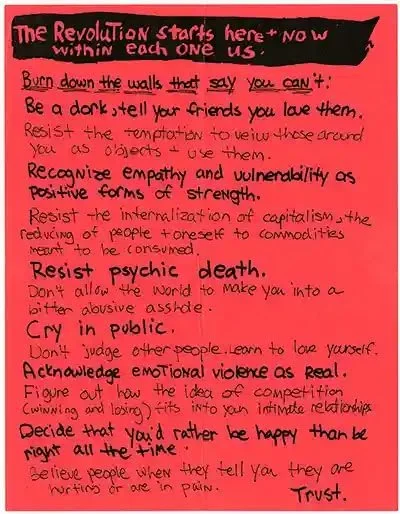 The Revolution starts here + now
within each one us.
Burn down the walls that say you can't:
Be a dork, tell your friends you love them.
Resist the temptation to veiw those around
you as objects + use them.
Recognize empathy and vulnerability as
positive forms of strength.
Resist the internalization of capitalism, the
reducing of people + oneself to commodities
meant to be consumed.
Resist psychic death.
Don't allow the world to make you into a
bitter abusive asshole.
Cry in public.
Don't judge other people. Learn to love yourself.
Acknowledge emotional violence as real.
Figure out how the idea of competition
(winning and losing) fits into your intimate relationships
Decide that you'd rather be happy than be
right all the time.
Believe people when they tell you they are
hurting or are in pain.
Trust.